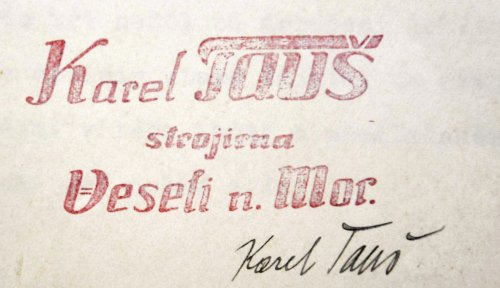 Karel Tauš
strojirna
Veseli n. Mor.
Karel Tauš